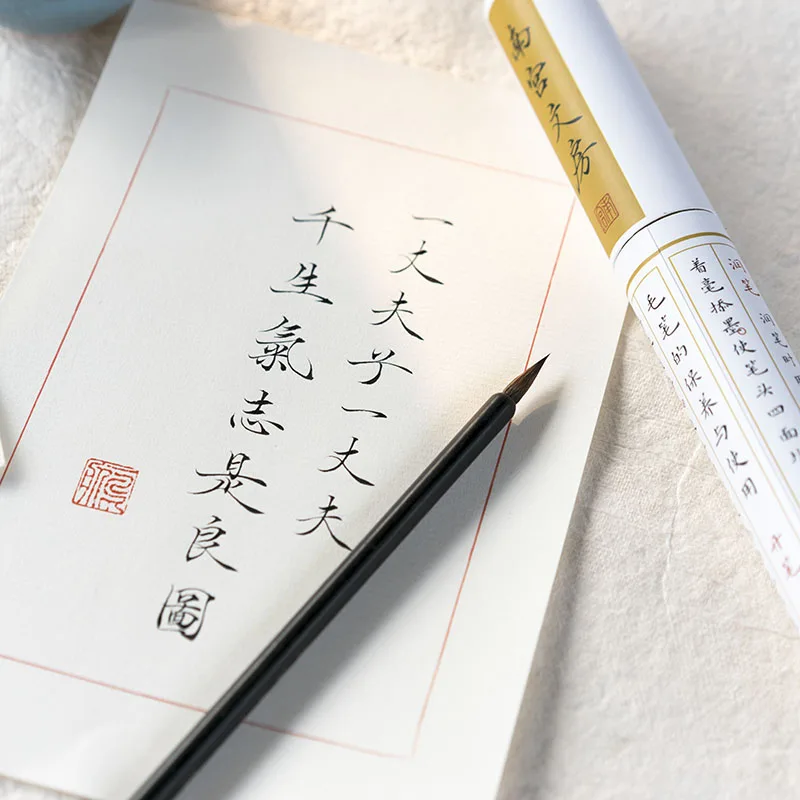 一丈夫兮一丈夫
千生氣志是良圖
南宫文房
润笔 润笔时
着毫添墨使笔头四面
开笔
毛笔的保养与使用